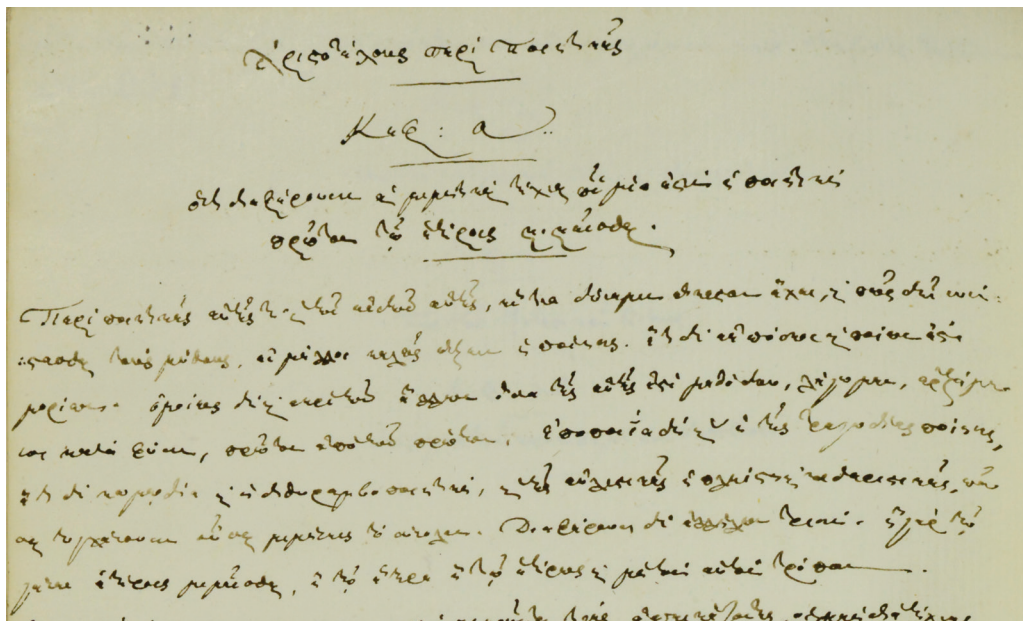 Ἀριστοτέλους περὶ Ποιητικῆς
Κεφ: α
ὅτι διαφέρουσιν αἱ μιμητικαὶ τέχναι ἡ ποιητικὴ
πρῶτον τῷ ἑτέροις μιμεῖσθαι.
Περὶ ποιητικῆς αὐτῆς τε καὶ τῶν εἰδῶν αὐτῆς, ἥντινα δύναμιν ἕκαστον ἔχει, καὶ πῶς δεῖ συνί-
στασθαι τοὺς μύθους, εἰ μέλλει καλῶς ἕξειν ἡ ποίησις. ἔτι δὲ ἐκ πόσων καὶ ποίων ἐστὶ
μορίων. ὁμοίως δὲ καὶ περὶ τῶν ἄλλων ὅσα τῆς αὐτῆς ἐστι μεθόδου, λέγωμεν, ἀρξάμε
νοι κατὰ φύσιν, πρῶτον ἀπὸ τῶν πρώτων. ἐποποιΐα δὴ καὶ ἡ τῆς τραγῳδίας ποίησις,
ἔτι δὲ κωμῳδία καὶ ἡ διθυραμβοποιητική, καὶ τῆς αὐλητικῆς ἡ πλείστη καὶ κιθαριστικῆς, πᾶ
σαι τυγχάνουσιν οὖσαι μιμήσεις τὸ σύνολον. Διαφέρουσι δὲ ἀλλήλων τρισί. ἢ γὰρ τῷ
γένει ἑτέροις μιμεῖσθαι, ἢ τῷ ἕτερα ἢ τῷ ἑτέρως καὶ μὴ τὸν αὐτὸν τρόπον.